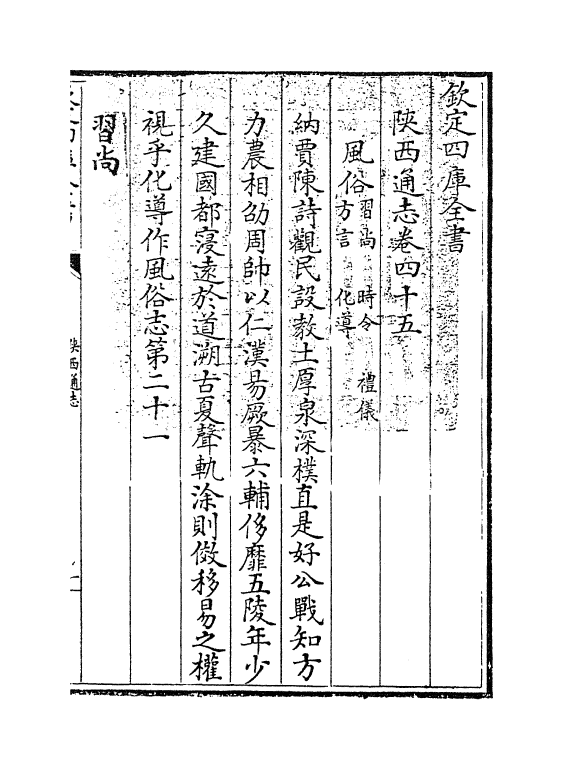 欽定四庫全書
陝西通志卷四十五
風俗 習尚 時令 禮儀
方言 化導
納賈陳詩觀民設教土厚泉深樸直是好公戰知方
力農相劭周帥以仁漢易厥暴六輔侈靡五陵年少
久建國都寖遠於道溯古夏聲軌涂則傚移易之權
視乎化導作風俗志第二十一
習尚
陝西通志